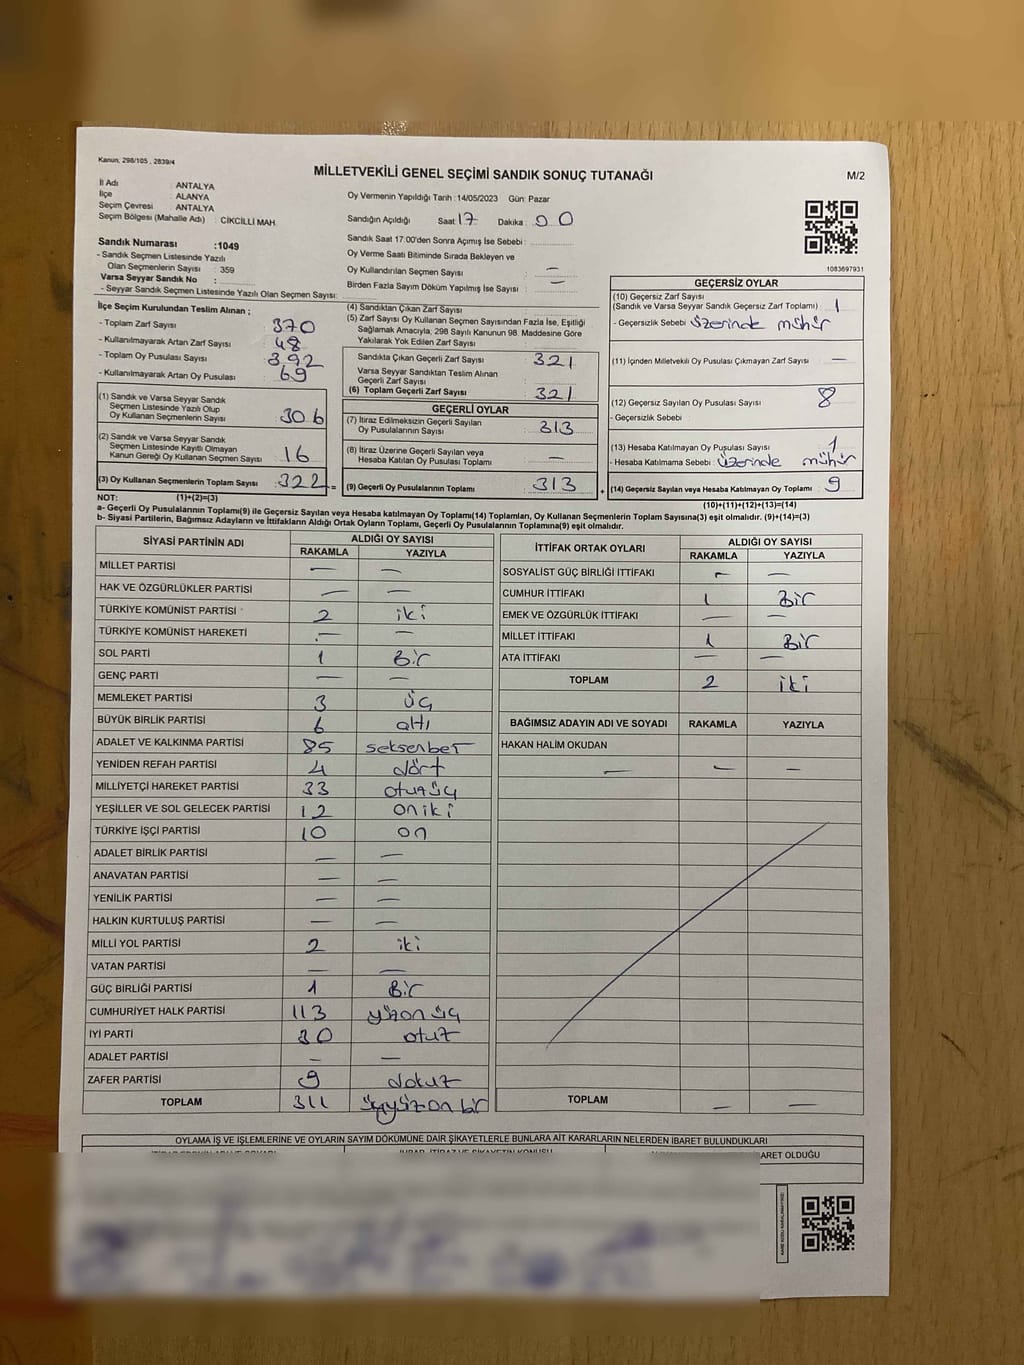 Kanun; 298/105 , 2839/4
MİLLETVEKİLİ GENEL SEÇİMİ SANDIK SONUÇ TUTANAĞI
M/2
İl Adı : ANTALYA
İlçe : ALANYA
Seçim Çevresi : ANTALYA
Seçim Bölgesi (Mahalle Adı) : CİKCİLLİ MAH.
Oy Vermenin Yapıldığı Tarih :14/05/2023 Gün: Pazar
Sandığın Açıldığı Saat: 17 Dakika : 00
Sandık Saat 17:00'den Sonra Açımış İse Sebebi :
Oy Verme Saati Bitiminde Sırada Bekleyen ve
Oy Kullandırılan Seçmen Sayısı : —
Birden Fazla Sayım Döküm Yapılmış İse Sayısı : —
Sandık Numarası :1049
- Sandık Seçmen Listesinde Yazılı
Olan Seçmenlerin Sayısı : 359
Varsa Seyyar Sandık No :
- Seyyar Sandık Seçmen Listesinde Yazılı Olan Seçmen Sayısı:
1083697931
İlçe Seçim Kurulundan Teslim Alınan ;
- Toplam Zarf Sayısı : 370
- Kullanılmayarak Artan Zarf Sayısı : 48
- Toplam Oy Pusulası Sayısı : 392
- Kullanılmayarak Artan Oy Pusulası : 69
(1) Sandık ve Varsa Seyyar Sandık
Seçmen Listesinde Yazılı Olup
Oy Kullanan Seçmenlerin Sayısı : 306
(2) Sandık ve Varsa Seyyar Sandık
Seçmen Listesinde Kayıtlı Olmayan
Kanun Gereği Oy Kullanan Seçmen Sayısı : 16
(3) Oy Kullanan Seçmenlerin Toplam Sayısı : 322 =
(4) Sandıktan Çıkan Zarf Sayısı :
(5) Zarf Sayısı Oy Kullanan Seçmen Sayısından Fazla İse, Eşitliği
Sağlamak Amacıyla; 298 Sayılı Kanunun 98. Maddesine Göre
Yakılarak Yok Edilen Zarf Sayısı :
Sandıkta Çıkan Geçerli Zarf Sayısı : 321
Varsa Seyyar Sandıktan Teslim Alınan
Geçerli Zarf Sayısı :
(6) Toplam Geçerli Zarf Sayısı : 321
GEÇERLİ OYLAR
(7) İtiraz Edilmeksizin Geçerli Sayılan
Oy Pusulalarının Sayısı : 313
(8) İtiraz Üzerine Geçerli Sayılan veya
Hesaba Katılan Oy Pusulası Toplamı : —
(9) Geçerli Oy Pusulalarının Toplamı : 313 +
GEÇERSİZ OYLAR
(10) Geçersiz Zarf Sayısı
(Sandık ve Varsa Seyyar Sandık Geçersiz Zarf Toplamı) : 1
- Geçersizlik Sebebi : üzerinde mühür
(11) İçinden Milletvekili Oy Pusulası Çıkmayan Zarf Sayısı : —
(12) Geçersiz Sayılan Oy Pusulası Sayısı : 8
- Geçersizlik Sebebi :
(13) Hesaba Katılmayan Oy Pusulası Sayısı : 1
- Hesaba Katılmama Sebebi : üzerinde mühür
(14) Geçersiz Sayılan veya Hesaba Katılmayan Oy Toplamı : 9
NOT: (1)+(2)=(3)
(10)+(11)+(12)+(13)=(14)
a- Geçerli Oy Pusulalarının Toplamı(9) ile Geçersiz Sayılan veya Hesaba Katılmayan Oy Toplamı(14) Toplamları, Oy Kullanan Seçmenlerin Toplam Sayısına(3) eşit olmalıdır. (9)+(14)=(3)
b- Siyasi Partilerin, Bağımsız Adayların ve İttifakların Aldığı Ortak Oyların Toplamı, Geçerli Oy Pusulalarının Toplamına(9) eşit olmalıdır.
SİYASİ PARTİNİN ADI ALDIĞI OY SAYISI
RAKAMLA YAZIYLA
MİLLET PARTİSİ — —
HAK VE ÖZGÜRLÜKLER PARTİSİ — —
TÜRKİYE KOMÜNİST PARTİSİ 2 iki
TÜRKİYE KOMÜNİST HAREKETİ — —
SOL PARTİ 1 Bir
GENÇ PARTİ — —
MEMLEKET PARTİSİ 3 üç
BÜYÜK BİRLİK PARTİSİ 6 altı
ADALET VE KALKINMA PARTİSİ 85 seksenbeş
YENİDEN REFAH PARTİSİ 4 dört
MİLLİYETÇİ HAREKET PARTİSİ 33 otuzüç
YEŞİLLER VE SOL GELECEK PARTİSİ 12 oniki
TÜRKİYE İŞÇİ PARTİSİ 10 on
ADALET BİRLİK PARTİSİ — —
ANAVATAN PARTİSİ — —
YENİLİK PARTİSİ — —
HALKIN KURTULUŞ PARTİSİ — —
MİLLİ YOL PARTİSİ 2 iki
VATAN PARTİSİ — —
GÜÇ BİRLİĞİ PARTİSİ 1 Bir
CUMHURİYET HALK PARTİSİ 113 yüzonüç
İYİ PARTİ 30 otuz
ADALET PARTİSİ — —
ZAFER PARTİSİ 9 dokuz
TOPLAM 311 üçyüzonbir
İTTİFAK ORTAK OYLARI ALDIĞI OY SAYISI
RAKAMLA YAZIYLA
SOSYALİST GÜÇ BİRLİĞİ İTTİFAKI — —
CUMHUR İTTİFAKI 1 Bir
EMEK VE ÖZGÜRLÜK İTTİFAKI — —
MİLLET İTTİFAKI 1 Bir
ATA İTTİFAKI — —
TOPLAM 2 iki
BAĞIMSIZ ADAYIN ADI VE SOYADI RAKAMLA YAZIYLA
HAKAN HALİM OKUDAN
— — —
TOPLAM — —
OYLAMA İŞ VE İŞLEMLERİNE VE OYLARIN SAYIM DÖKÜMÜNE DAİR ŞİKAYETLERLE BUNLARA AİT KARARLARIN NELERDEN İBARET BULUNDUKLARI
BARET OLDUĞU